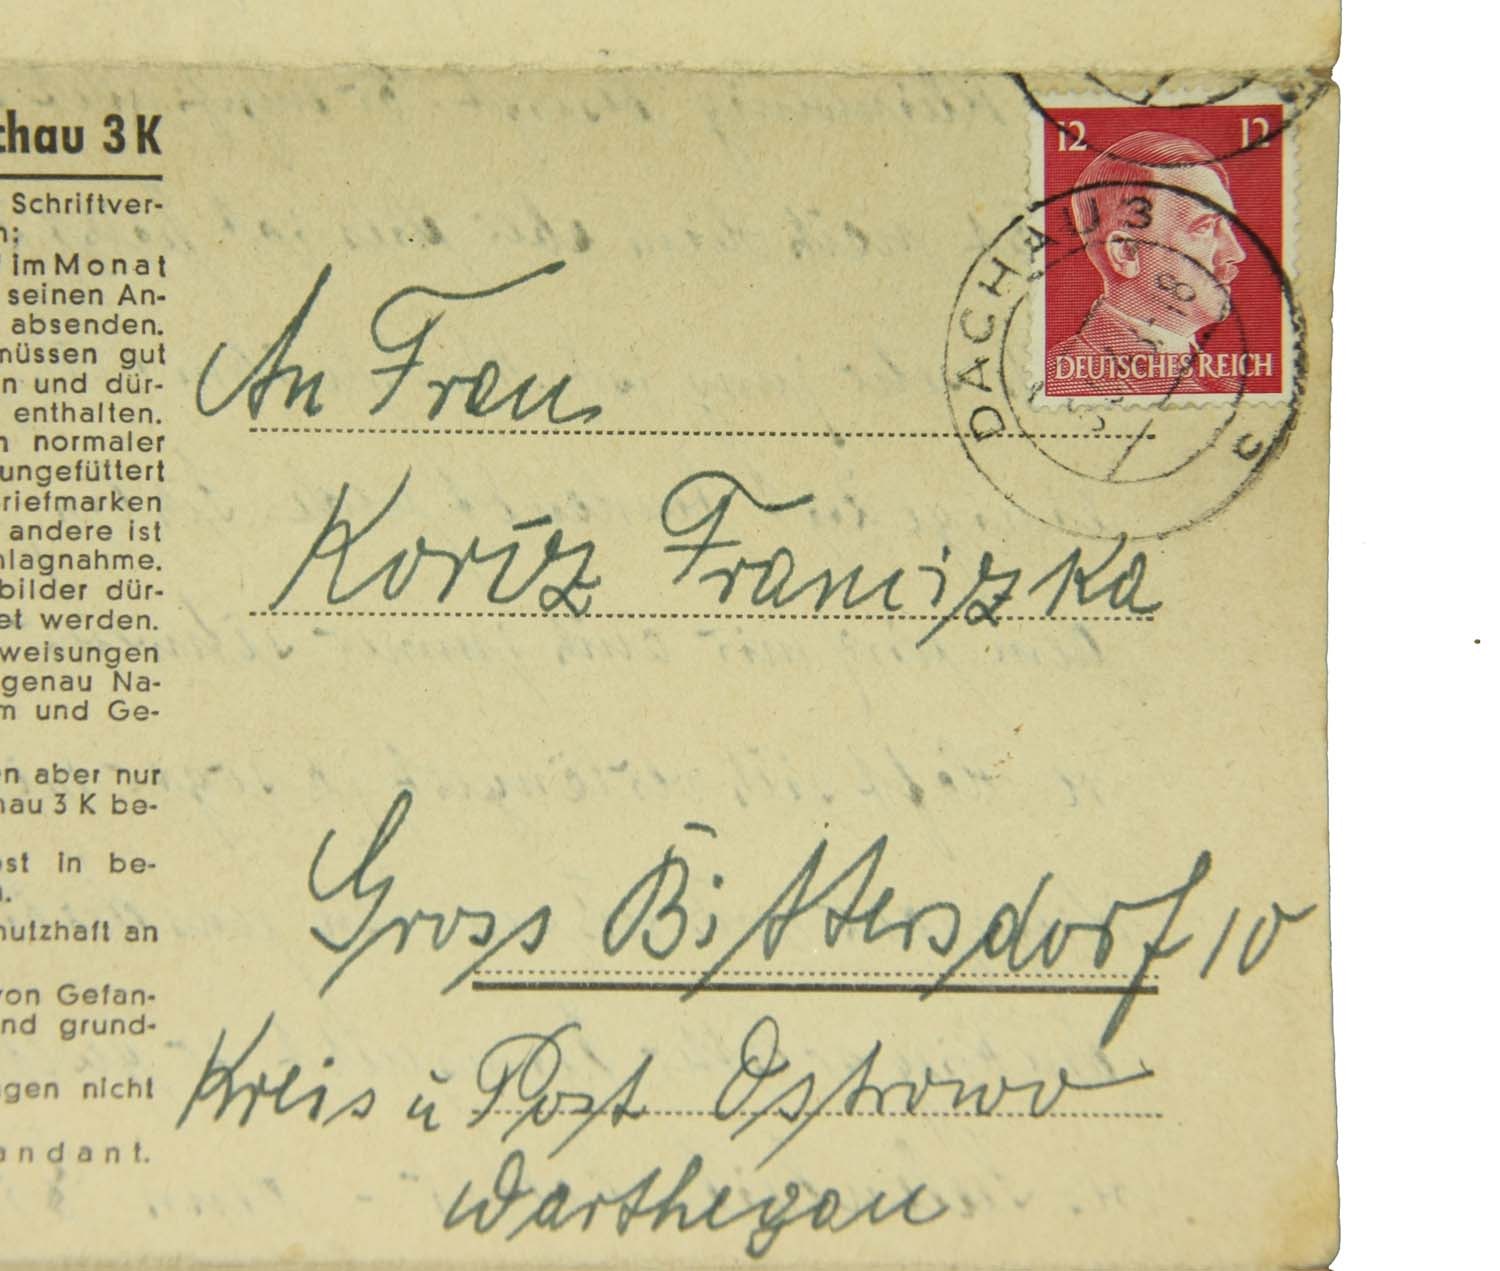 chau 3 K
Schriftver-
n:
im Monat
seinen An-
absenden.
müssen gut
n und dür-
enthalten.
n normaler
ungefüttert
riefmarken
andere ist
hlagnahme.
bilder dür-
et werden.
weisungen
genau Na-
m und Ge-
n aber nur
hau 3 K be-
ost in be-
n.
hutzhaft an
von Gefan-
nd grund-
gen nicht
andant.
12 12
DEUTSCHES REICH
DACHAU 3
c
An Frau
Francizka
Gross Bittersdorf 10
Kreis u Post Ostrowo
Warthegau